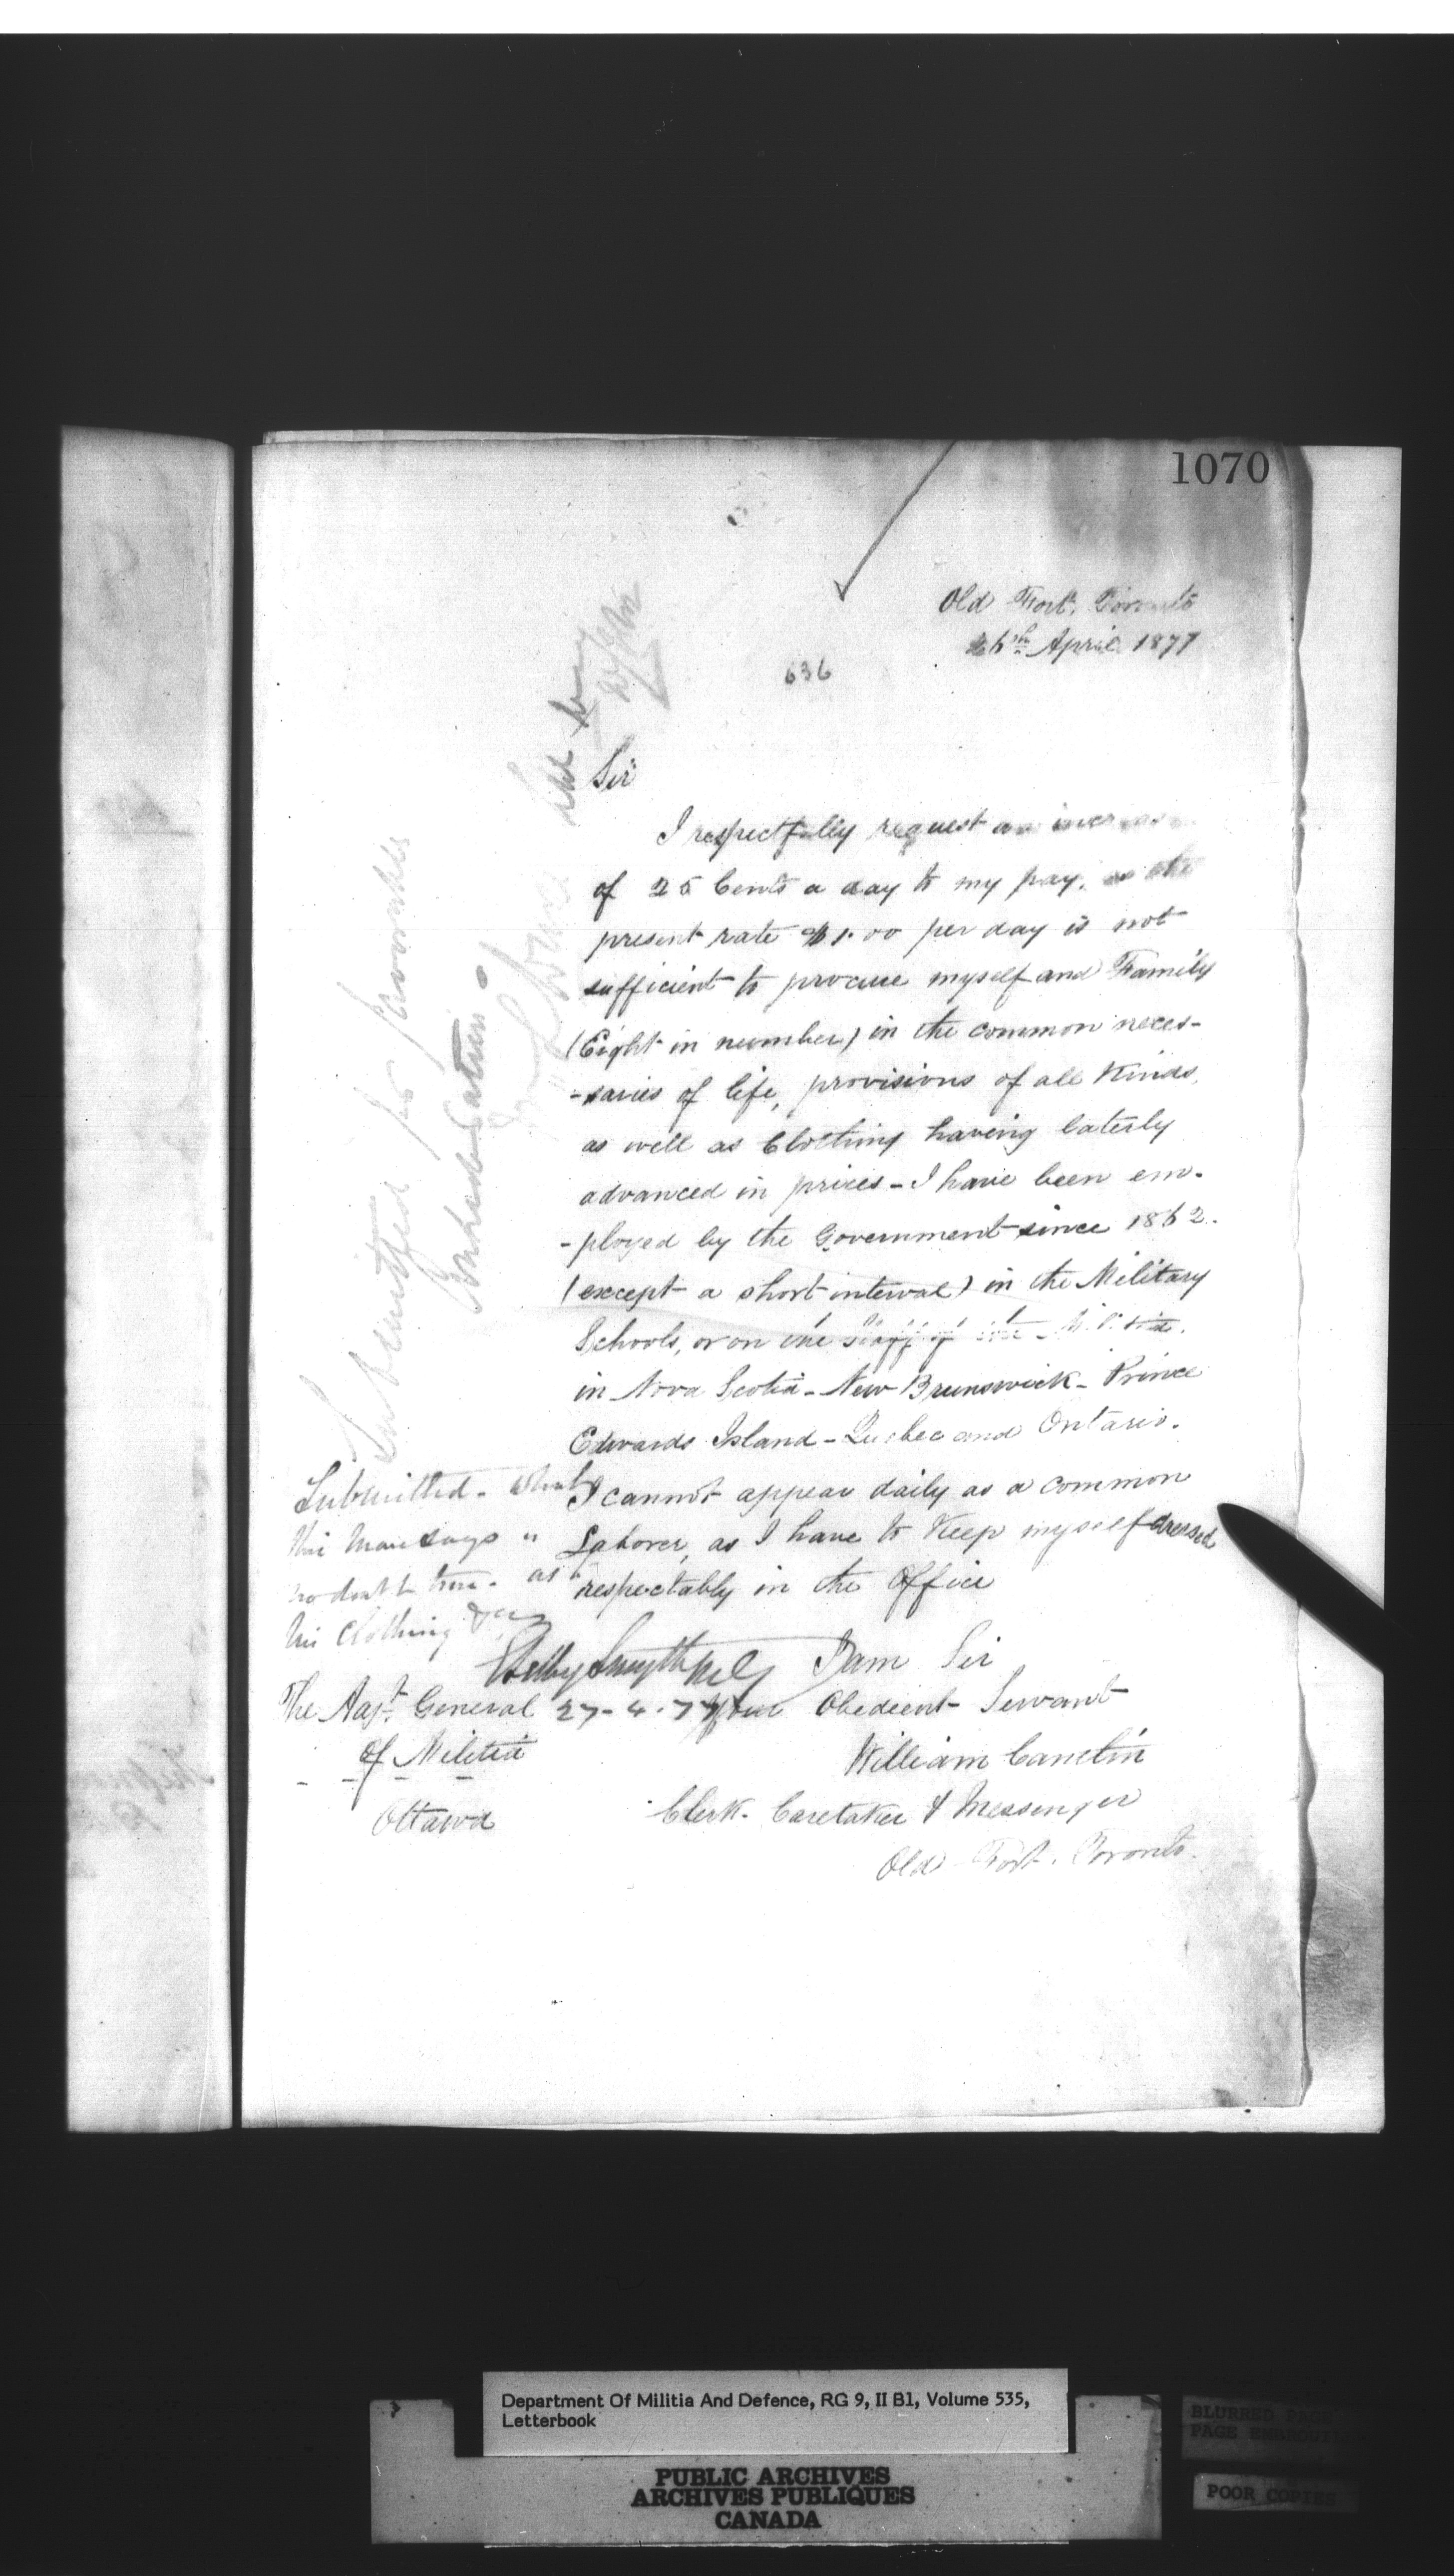 1070
Old Fort, Toronto
26th April 1877
636
Sir
I respectfully request an increase
of 25 Cents a day to my pay, as the
present rate $1.00 per day is not
sufficient to procure myself and Family
(Eight in number) in the common neces-
-saries of life, provisions of all Kinds,
as well as Clothing having laterly
advanced in prices - I have been em-
-ployed by the Government since 1862.
(except a short interval) in the Military
Schools, or on the Staff of the Militia.
in Nova Scotia - New Brunswick - Prince
Edwards Island - Quebec and Ontario.
I cannot appear daily as a common
Laborer, as I have to Keep myself dressed
respectably in the Office
I am Sir
Your Obedient Servant
William Canclin
Clerk. Caretaker & Messenger
Old Fort. Toronto.
The Adjt. General
of Militia
Ottawa
Submitted for favorable
Consideration
Submitted. What
this man says is
no doubt true. as
his Clothing &c
E Selby Smyth MG
27-4-77
Department Of Militia And Defence, RG 9, II B1, Volume 535,
Letterbook
PUBLIC ARCHIVES
ARCHIVES PUBLIQUES
CANADA
BLURRED PAGE
PAGE EMBROUILLÉE
POOR COPIES